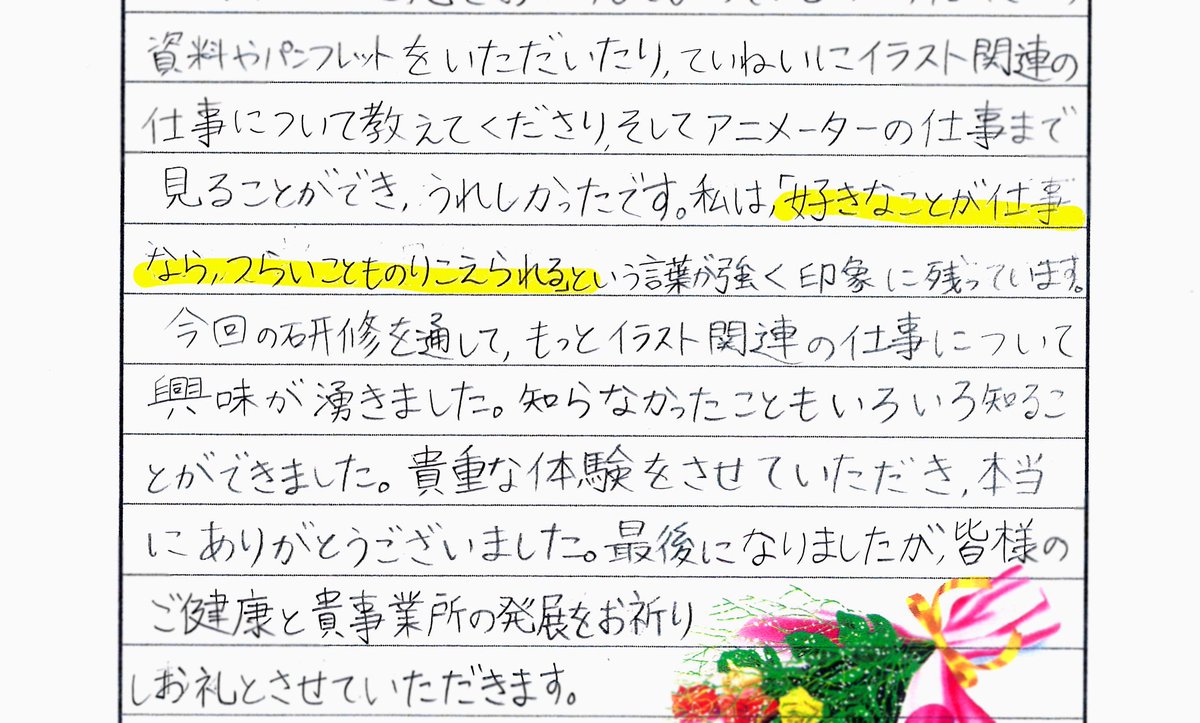 資料やパンフレットをいただいたり,ていねいにイラスト関連の
仕事について教えてくださり,そしてアニメーターの仕事まで
見ることができ,うれしかったです。私は,「好きなことが仕事
なら,つらいことものりこえられる」という言葉が強く印象に残っています。
今回の研修を通して,もっとイラスト関連の仕事について
興味が湧きました。知らなかったこともいろいろ知るこ
とができました。貴重な体験をさせていただき,本当
にありがとうございました。最後になりましたが,皆様の
ご健康と貴事業所の発展をお祈り
しお礼とさせていただきます。